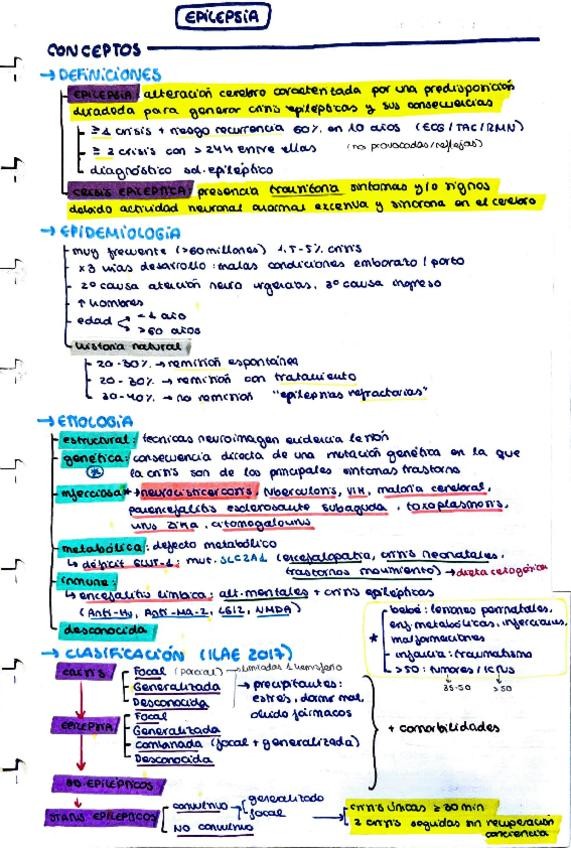 EPILEPSIA
CONCEPTOS
→ DEFINICIONES
EPILEPSIA: alteración cerebro caracterizada por una predisposición
duradera para generar crisis epilépticas y sus consecuencias
≥ 1 crisis + riesgo recurrencia 60% en 10 años (ECG/TAC/RMN)
≥ 2 crisis con >24H entre ellas (no provocadas/reflejas)
diagnóstico sd. epiléptico
CRISIS EPILÉPTICA: presencia transitoria síntomas y/o signos
debido actividad neuronal anormal excesiva y síncrona en el cerebro
→ EPIDEMIOLOGÍA
muy frecuente (>60 millones) 1.5-5% crisis
x3 vías desarrollo: malas condiciones embarazo / parto
2º causa atención neuro urgencias, 3º causa ingreso
↑ hombres
edad < 1 año
> 60 años
historia natural
20-30% → remisión espontánea
20-30% → remisión con tratamiento
30-40% → no remisión "epilepsias refractarias"
→ ETIOLOGÍA
estructural: técnicas neuroimagen evidencia lesión
genética: consecuencia directa de una mutación genética en la que
* la crisis son de los principales síntomas trastorno
infecciosa * → neurocisticercosis, tuberculosis, VIH, malaria cerebral,
panencefalitis esclerosante subaguda, toxoplasmosis,
virus zika, citomegalovirus
metabólica: defecto metabólico
↳ déficit GLUT-1: mut. SLC2A1 (encefalopatía, crisis neonatales,
trastornos movimiento) → dieta cetogénica
inmune:
↳ encefalitis límbica: alt. mentales + crisis epilépticas
(Anti-Hu, Anti-MA-2, LGI2, NMDA)
desconocida
* bebé: lesiones perinatales,
enf. metabólicas, infecciosas,
malformaciones
infancia: traumatismo
>50: tumores / ICTUS
35-50 >50
→ CLASIFICACIÓN (ILAE 2017)
CRISIS Focal (parcial) → limitadas 1 hemisferio
Generalizada
Desconocida
→ precipitantes:
estrés, dormir mal,
olvido fármacos
EPILEPSIA Focal
Generalizada
Combinada (focal + generalizada)
Desconocida
+ comorbilidades
SD. EPILÉPTICOS
STATUS EPILÉPTICOS convulsivo generalizado
focal
NO convulsivo
crisis únicas ≥ 30 min
2 crisis seguidas sin recuperación
conciencia